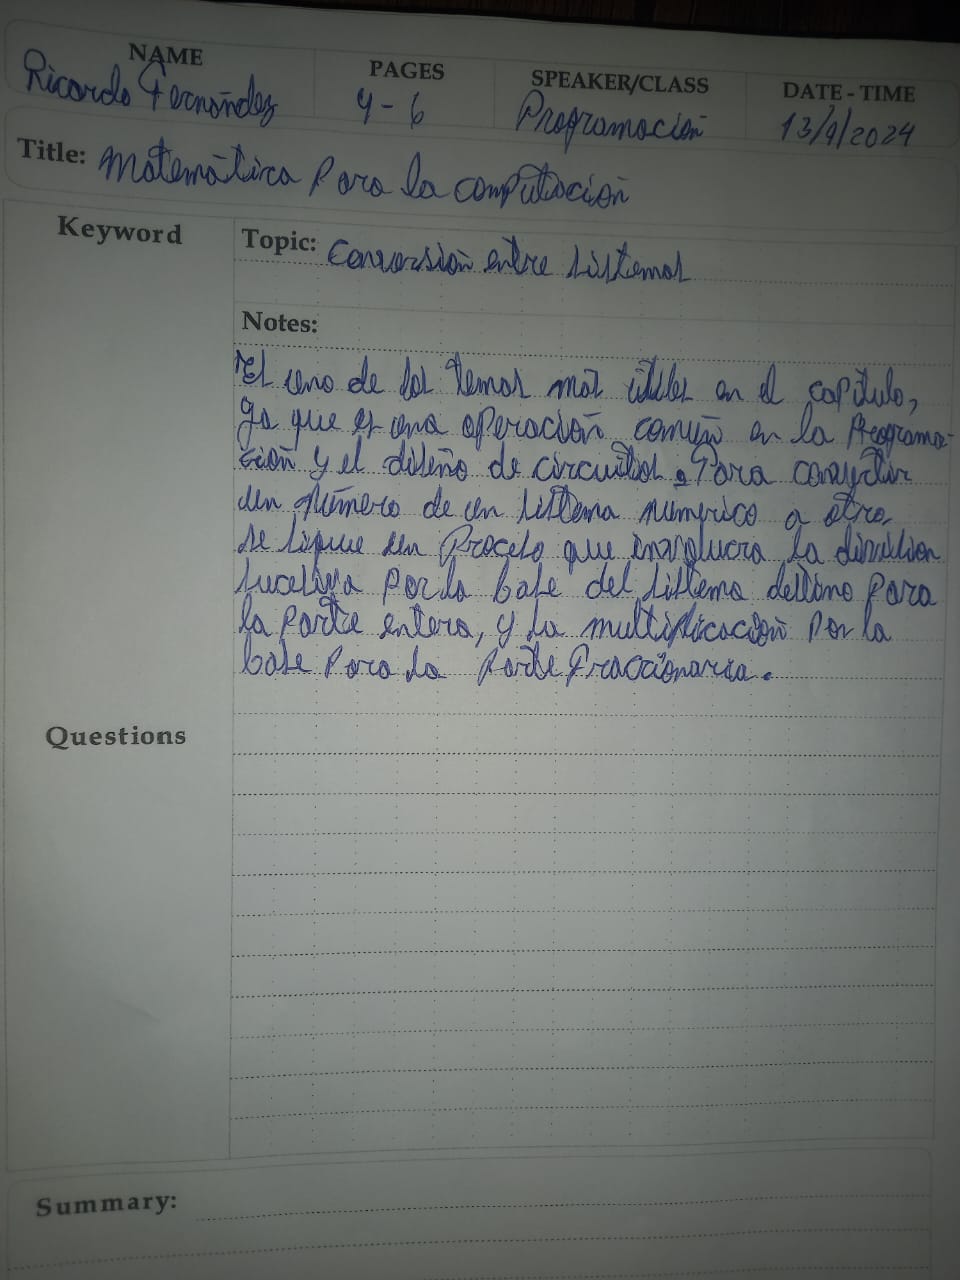 NAME PAGES SPEAKER/CLASS DATE - TIME
Ricardo Fernández 4-6 Programación 13/9/2024
Title: Matemática para la computación
Keyword
Topic: Conversión entre sistemas
Notes:
El uno de los temas mas útiles en el capitulo,
ya que es una operación común en la Programa-
ción y el diseño de circuitos. Para convertir
un número de un sistema numerico a otro,
se sigue un Proceso que involucra la división
sucesiva por la base del sistema destino para
la parte entera, y la multiplicación por la
base para la parte fraccionaria.
Questions
Summary: